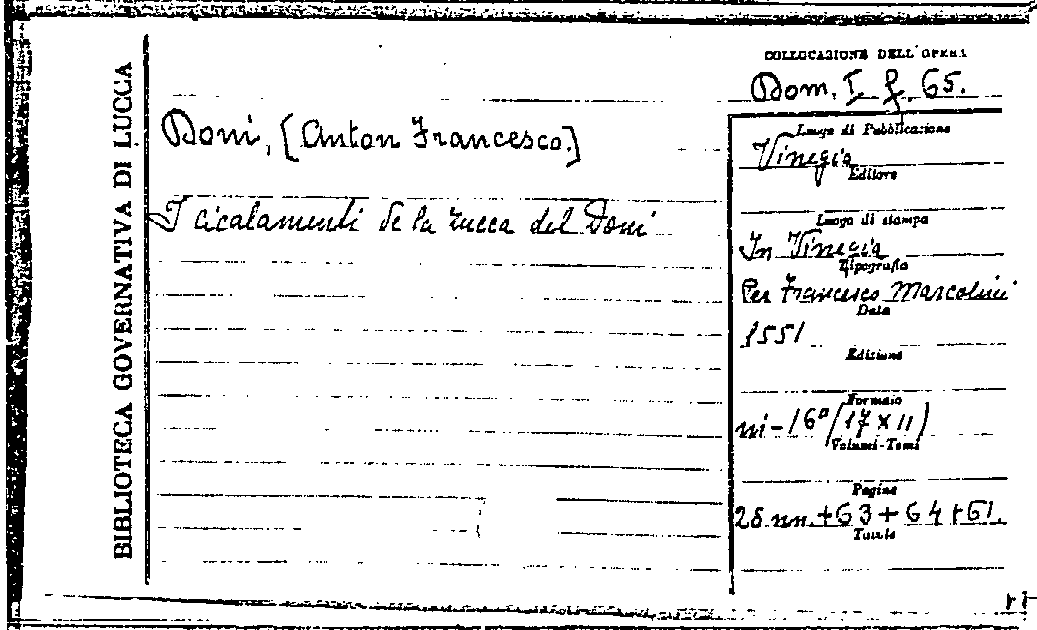 BIBLIOTECA GOVERNATIVA DI LUCCA
COLLOCAZIONE DELL'OPERA
Dom. I. f. 65.
Doni, [Anton Francesco.]
I cicalamenti de la zucca del Doni
Luogo di Pubblicazione
Vinegia
Editore
Luogo di stampa
In Vinegia
Tipografia
Per Francesco Marcolini
Data
1551
Edizione
Formato
in-16° (17 x 11)
Volumi-Tomi
Pagine
28 nn. + 63 + 64 + 61.
Tavole